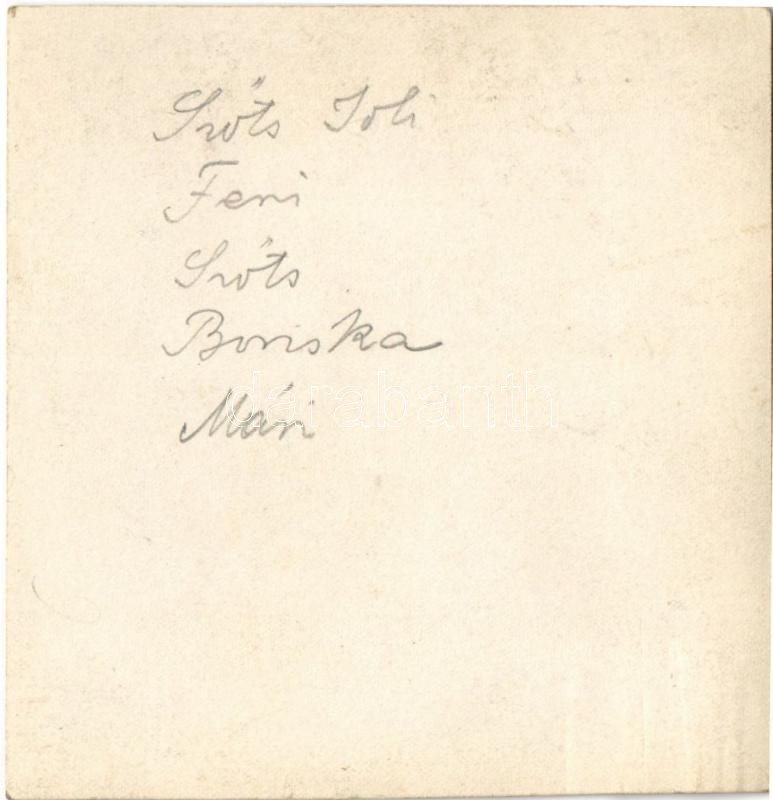 Szőts Joli
Feri
Szőts
Boriska
Mári
darabanth